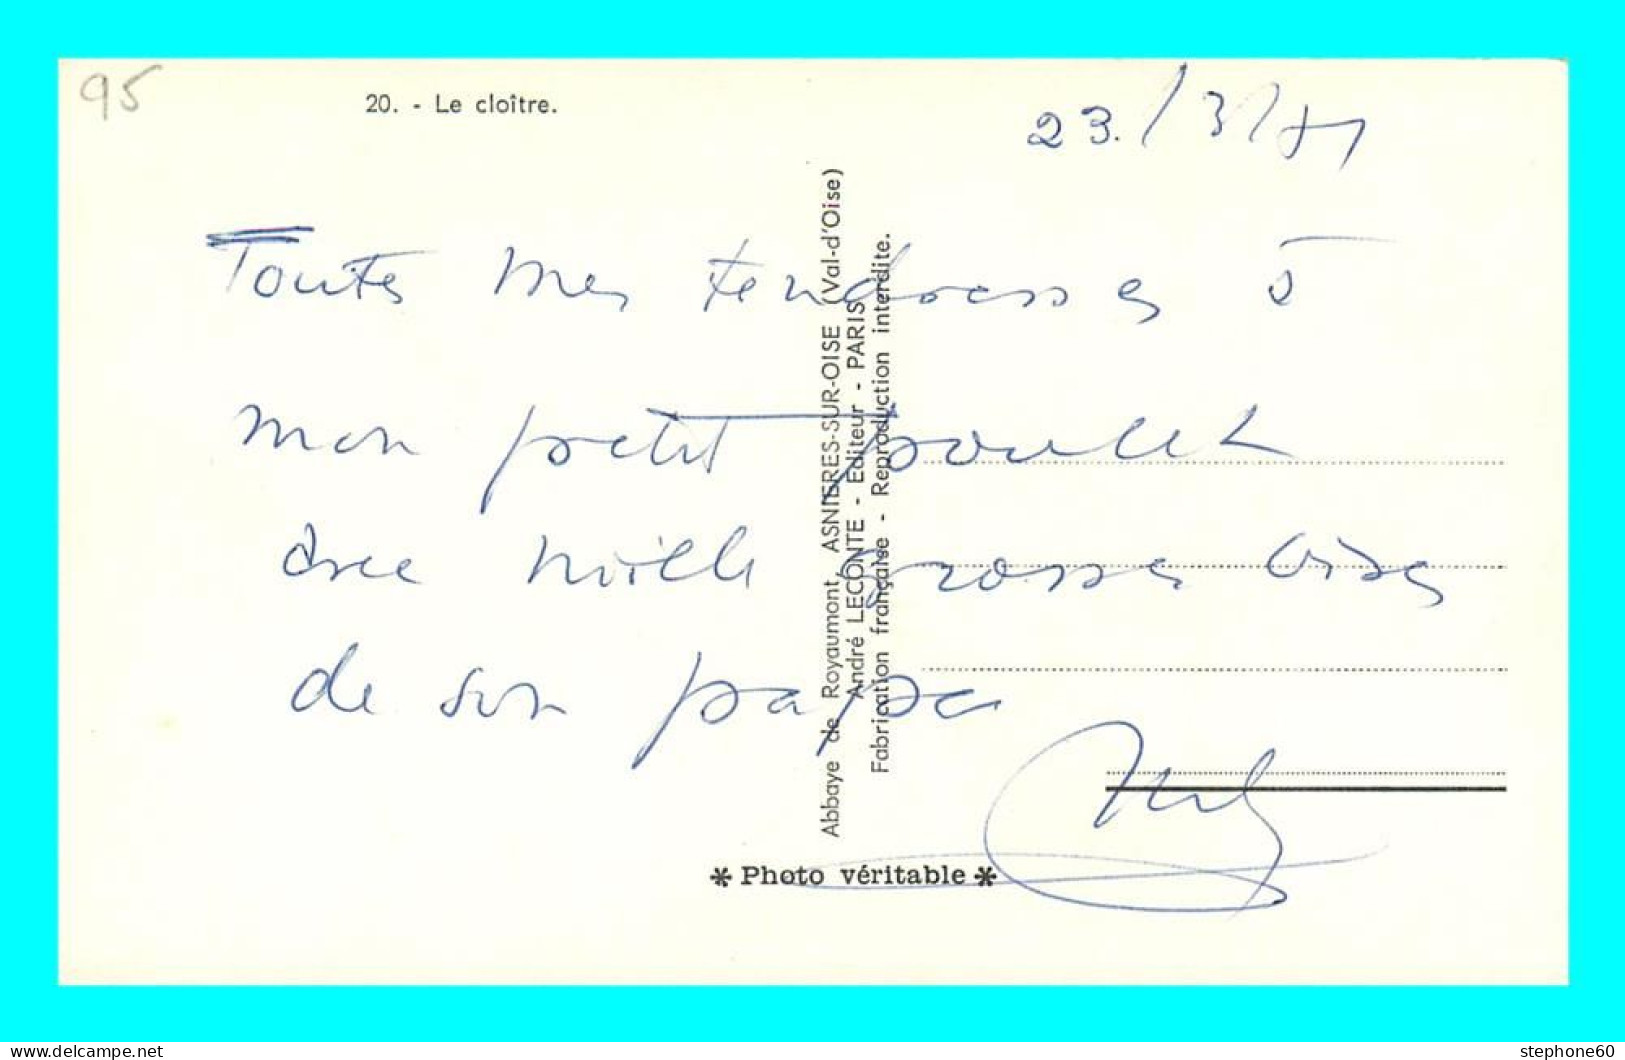 95
20. - Le cloître.
23./3/71
Toutes mes tendresses à
mon petit poulet
avec mille grosses bises
de son papa
Abbaye de Royaumont ASNIERES-SUR-OISE (Val-d'Oise)
André LECONTE - Editeur - PARIS
Fabrication française - Reproduction interdite.
* Photo véritable *
www.delcampe.net
stephone60